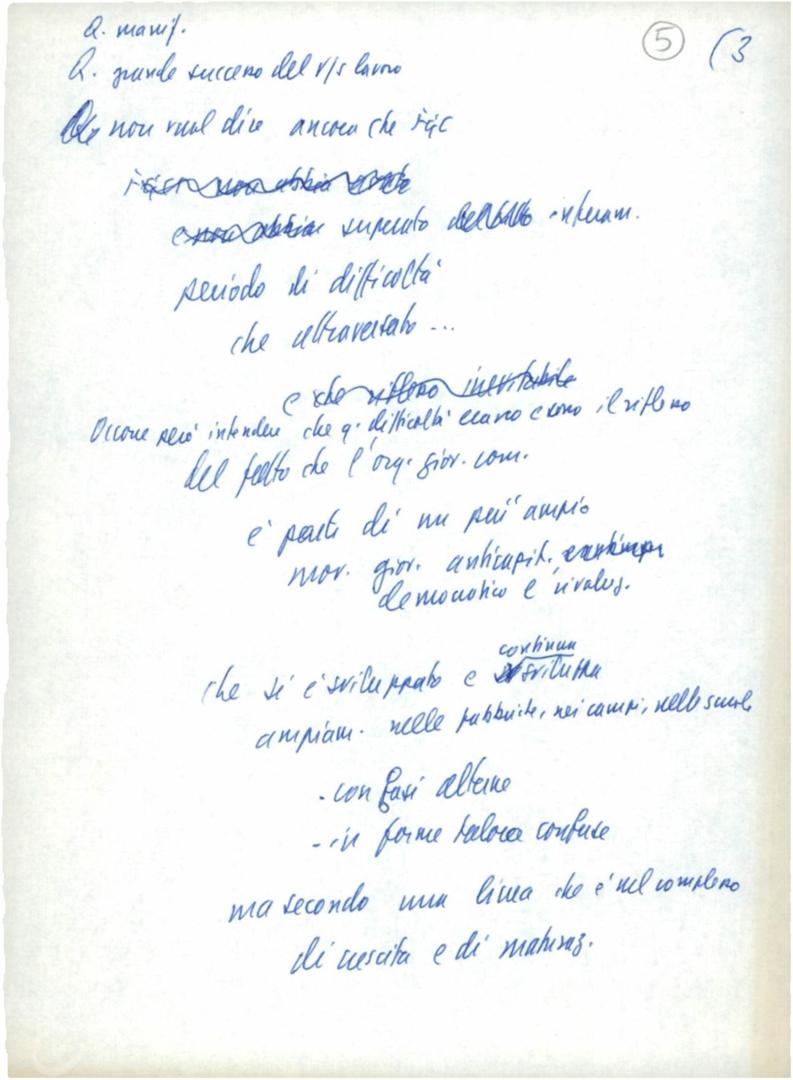 5 (3
Q. manif.
Q. grande successo del v/s lavoro
non vuol dire ancora che
superato interam.
periodo di difficoltà
che attraversato ...
e che riflesso inevitabile
Occorre però intendere che q. difficoltà erano e sono il riflesso
del fatto che l'org. giov. com.
è parte di un più ampio
mov. giov. anticapit.,
democratico e rivoluz.
continua
che si è sviluppato e sviluppa
ampiam. nelle fabbriche, nei campi, nelle scuole
- con fasi alterne
- in forme talora confuse
ma secondo una linea che è nel complesso
di crescita e di maturaz.